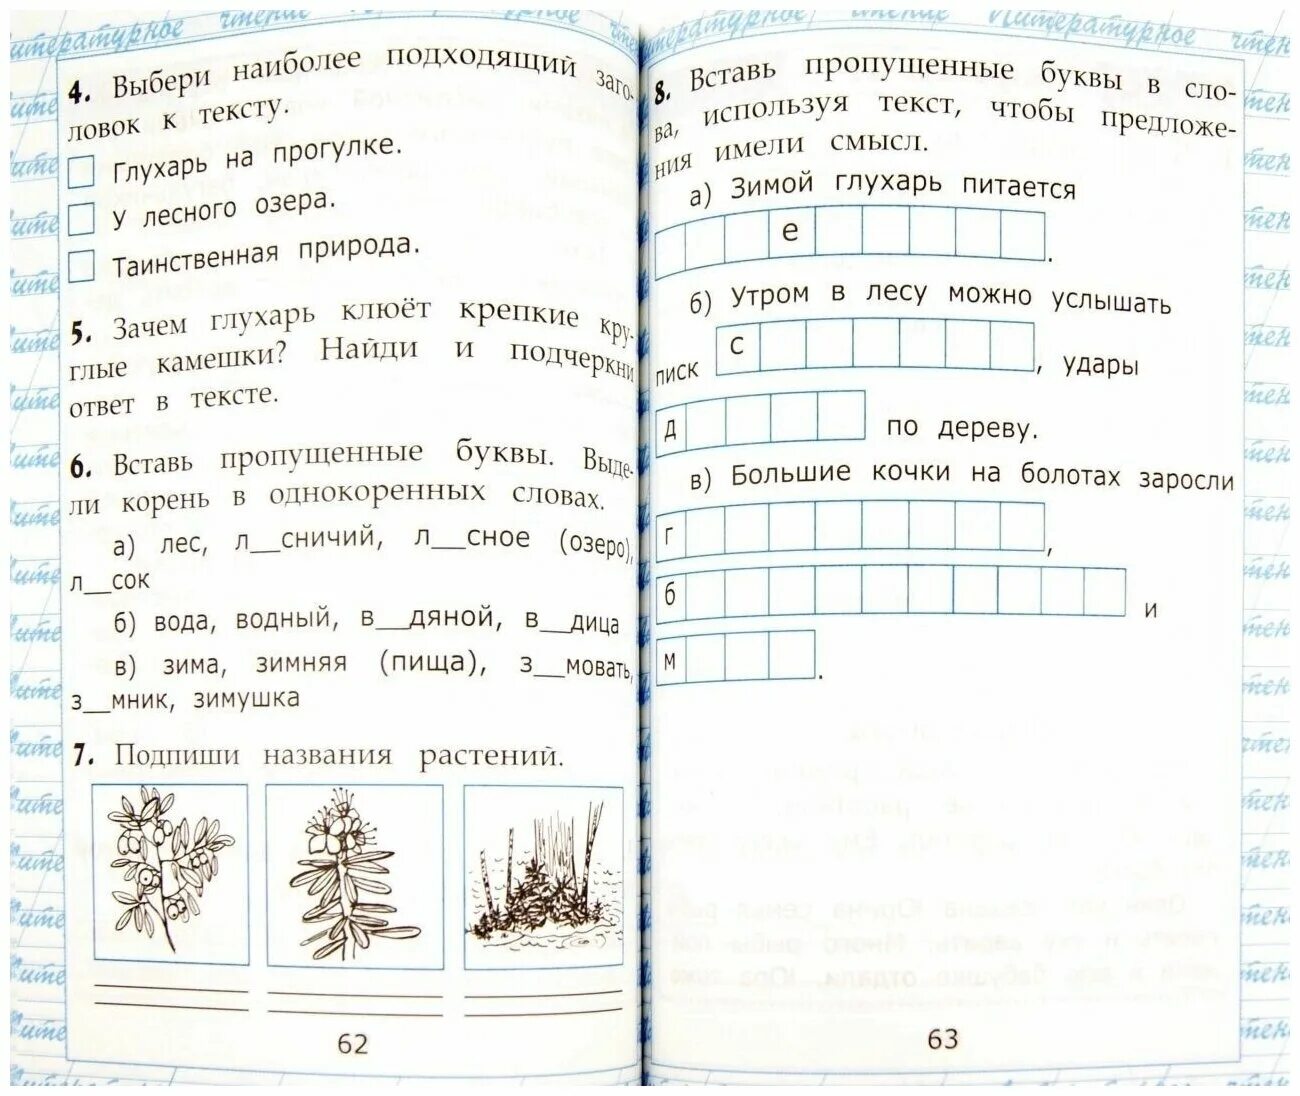 Литературное чтение Литературное чтение Литературное чтение
4. Выбери наиболее подходящий заго-
ловок к тексту.
Глухарь на прогулке.
У лесного озера.
Таинственная природа.
5. Зачем глухарь клюёт крепкие кру-
глые камешки? Найди и подчеркни
ответ в тексте.
6. Вставь пропущенные буквы. Выде-
ли корень в однокоренных словах.
а) лес, л__сничий, л__сное (озеро),
л__сок
б) вода, водный, в__дяной, в__дица
в) зима, зимняя (пища), з__мовать,
з__мник, зимушка
7. Подпиши названия растений.
62
8. Вставь пропущенные буквы в сло-
ва, используя текст, чтобы предложе-
ния имели смысл.
а) Зимой глухарь питается
е .
б) Утром в лесу можно услышать
писк с , удары
д по дереву.
в) Большие кочки на болотах заросли
г ,
б и
м .
63